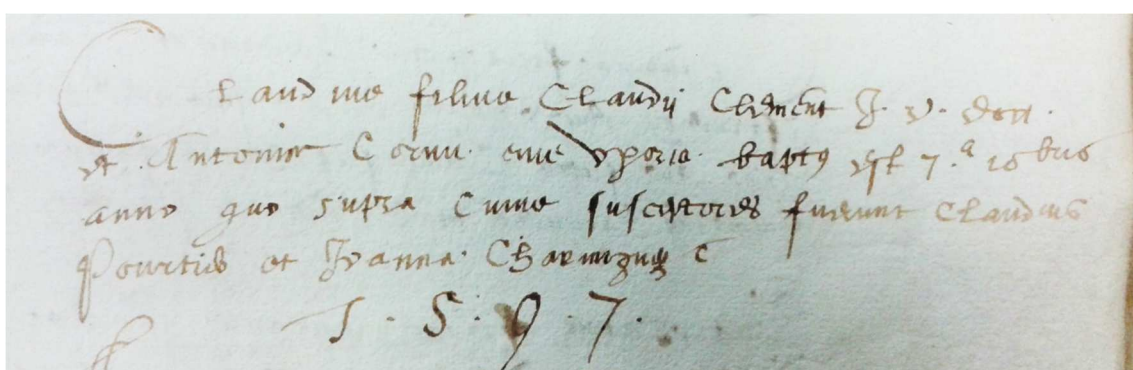 Claudius filius Claudii Clement J. V. doct.
et Antoniae Cornu eius uxoris baptus est 7.a 10bris
anno quo supra Cuius susceptores fuerunt Claudius
et Joanna
1. 5. 9. 7.